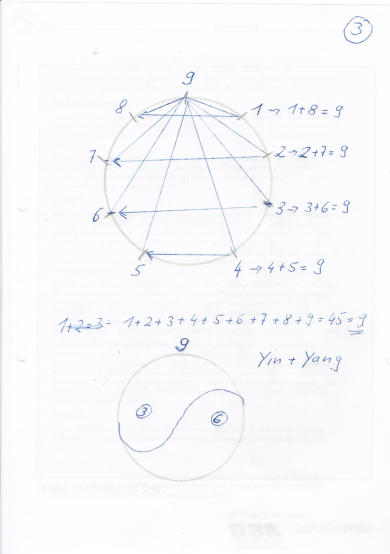 3
9
8
1 → 1+8 = 9
7
2 → 2+7 = 9
6
3 → 3+6 = 9
5
4 → 4+5 = 9
1+2=3= 1+2+3+4+5+6+7+8+9=45=9
9
Yin + Yang
3
6